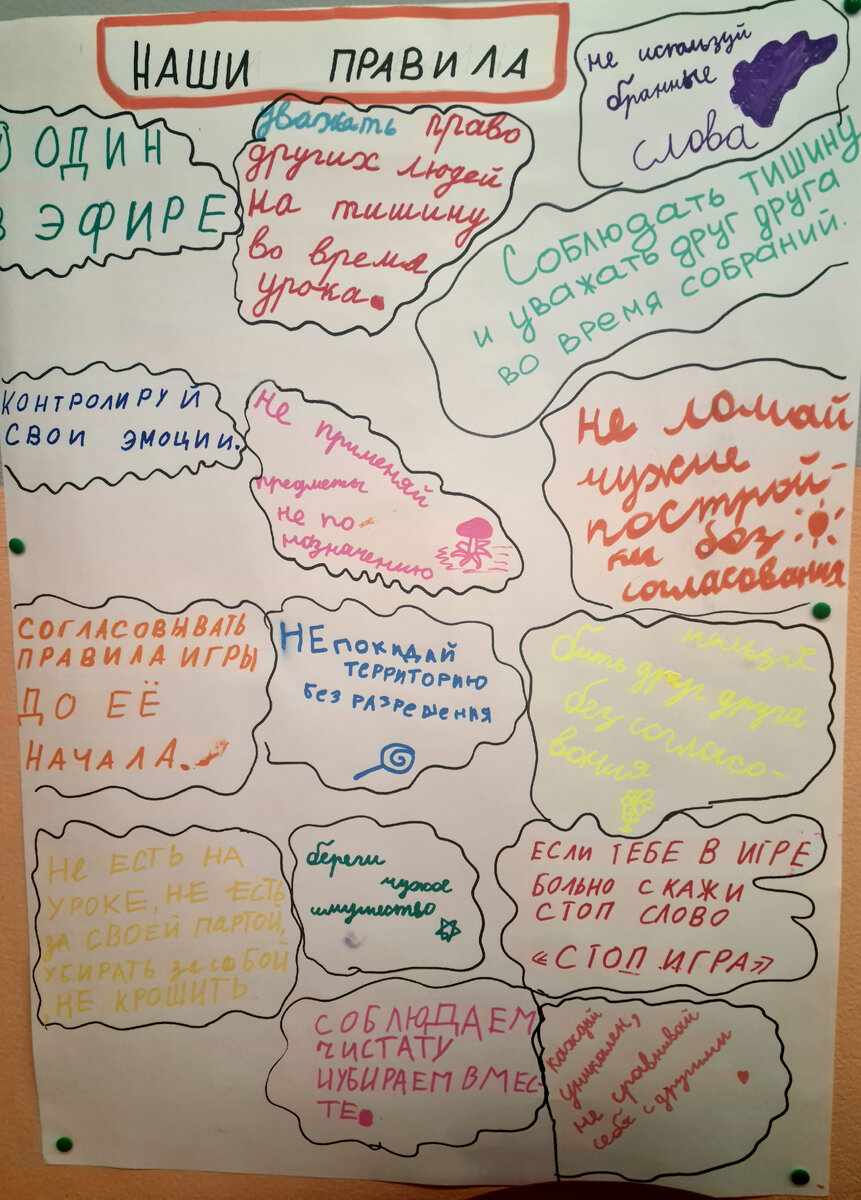 НАШИ ПРАВИЛА
не используй
бранные
слова
1) ОДИН
В ЭФИРЕ
уважать право
других людей
на тишину
во время
урока.
Соблюдать тишину
и уважать друг друга
во время собраний.
КОНТРОЛИРУЙ
СВОИ ЭМОЦИИ.
не применяй
предметы
не по
назначению
не ломай
чужие
построй-
ки без
согласования
СОГЛАСОВЫВАТЬ
ПРАВИЛА ИГРЫ
ДО ЕЁ
НАЧАЛА.
НЕ ПОКИДАЙ
ТЕРРИТОРИЮ
БЕЗ РАЗРЕШЕНИЯ
бить друг друга
без согласо-
вания
НЕ ЕСТЬ НА
УРОКЕ, НЕ ЕСТЬ
ЗА СВОЕЙ ПАРТОЙ,
УБИРАТЬ за собОЙ
, НЕ КРОШИТЬ
береги
чужое
имущество
ЕСЛИ ТЕБЕ В ИГРЕ
БОЛЬНО СКАЖИ
СТОП СЛОВО
«СТОП ИГРА»
СОБЛЮДАЕМ
ЧИСТАТУ
И УБИРАЕМ ВМЕС-
ТЕ
каждый
уникален,
не сравнивай
себя с другими